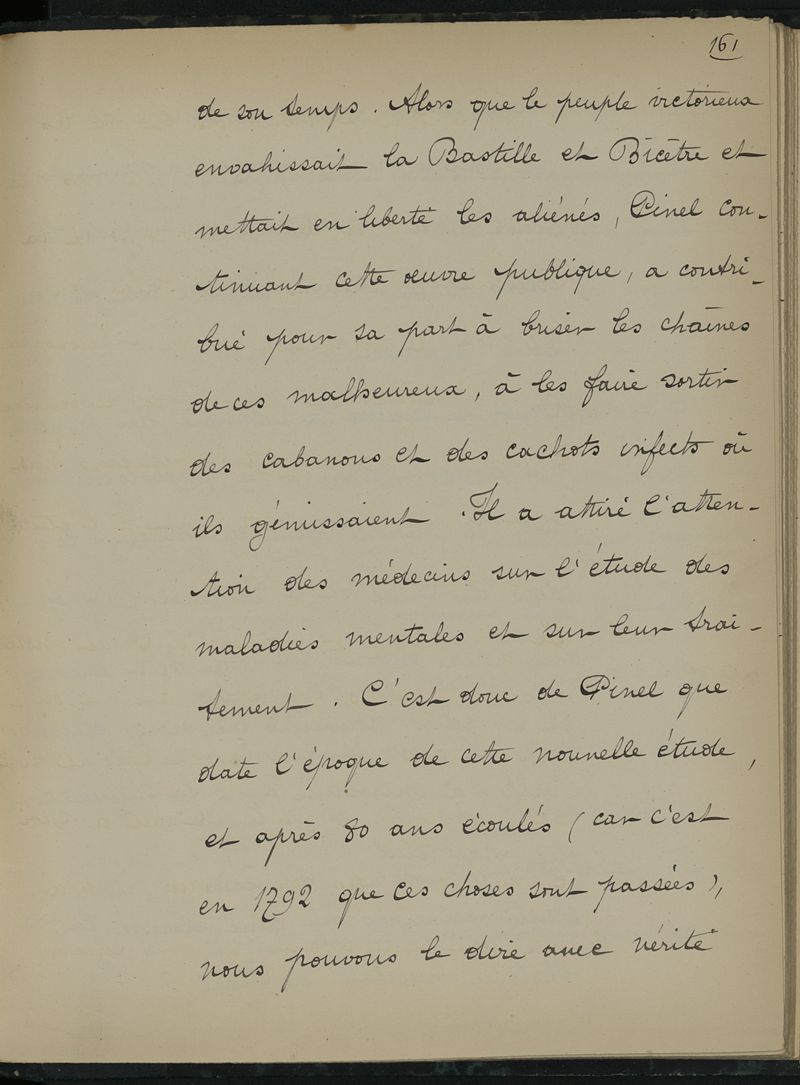 161
de son temps. Alors que le peuple victorieux
envahissait la Bastille et Bicêtre et
mettait en liberté les aliénés, Pinel con-
tinuant cette œuvre publique, a contri-
bué pour sa part à briser les chaînes
de ces malheureux, à les faire sortir
des cabanons et des cachots infects où
ils gémissaient. Il a attiré l'atten-
tion des médecins sur l'étude des
maladies mentales et sur leur trai-
tement. C'est donc de Pinel que
date l'époque de cette nouvelle étude,
et après 80 ans écoulés (car c'est
en 1792 que ces choses sont passées),
nous pouvons le dire avec vérité